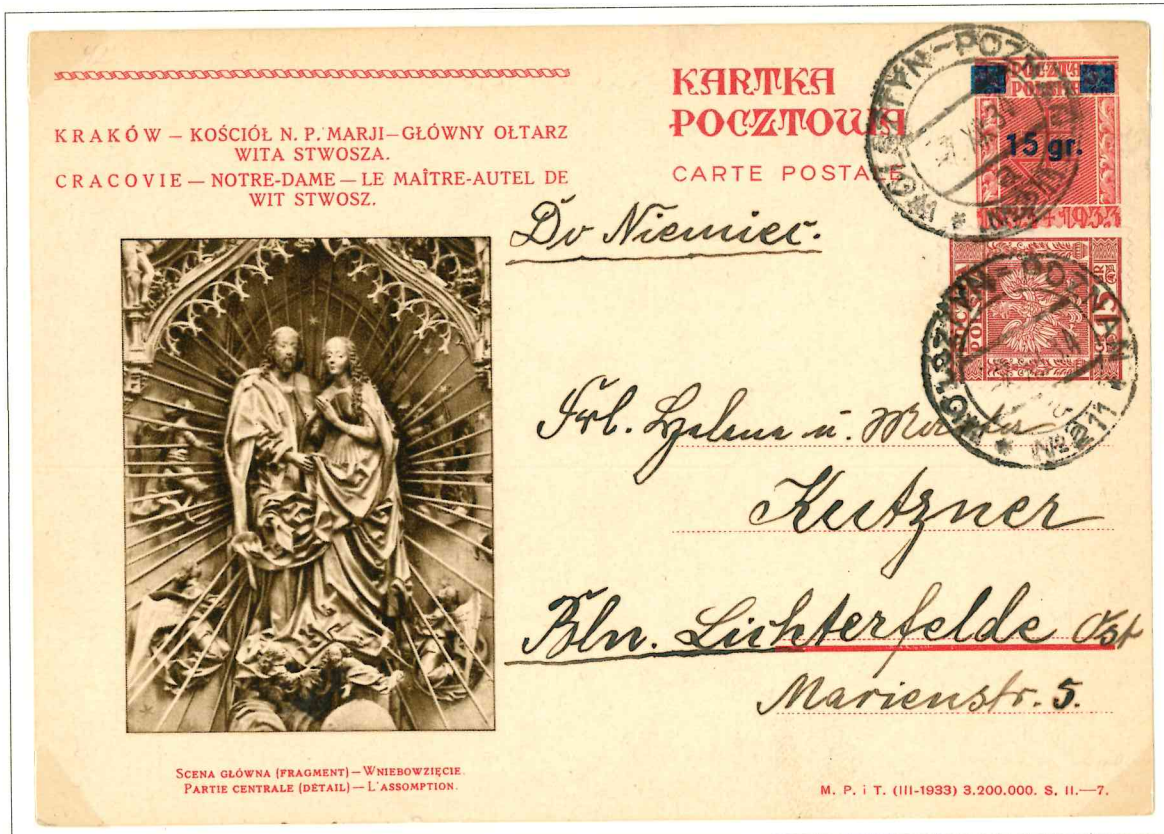 KRAKÓW — KOŚCIÓŁ N. P. MARJI—GŁÓWNY OŁTARZ
WITA STWOSZA.
CRACOVIE — NOTRE-DAME — LE MAÎTRE-AUTEL DE
WIT STWOSZ.
KARTKA
POCZTOWA
CARTE POSTALE
POCZTA
POLSKA
15 gr.
WOLSZTYN-POZNAŃ
WOLSZTYN-POZNAŃ
№ 211
Do Niemiec.
Frl. Helene u.
Kutzner
Bln. Lichterfelde Ost
Marienstr. 5.
SCENA GŁÓWNA (FRAGMENT) — WNIEBOWZIĘCIE.
PARTIE CENTRALE (DÉTAIL) — L'ASSOMPTION.
M. P. i T. (III-1933) 3.200.000. S. II.—7.